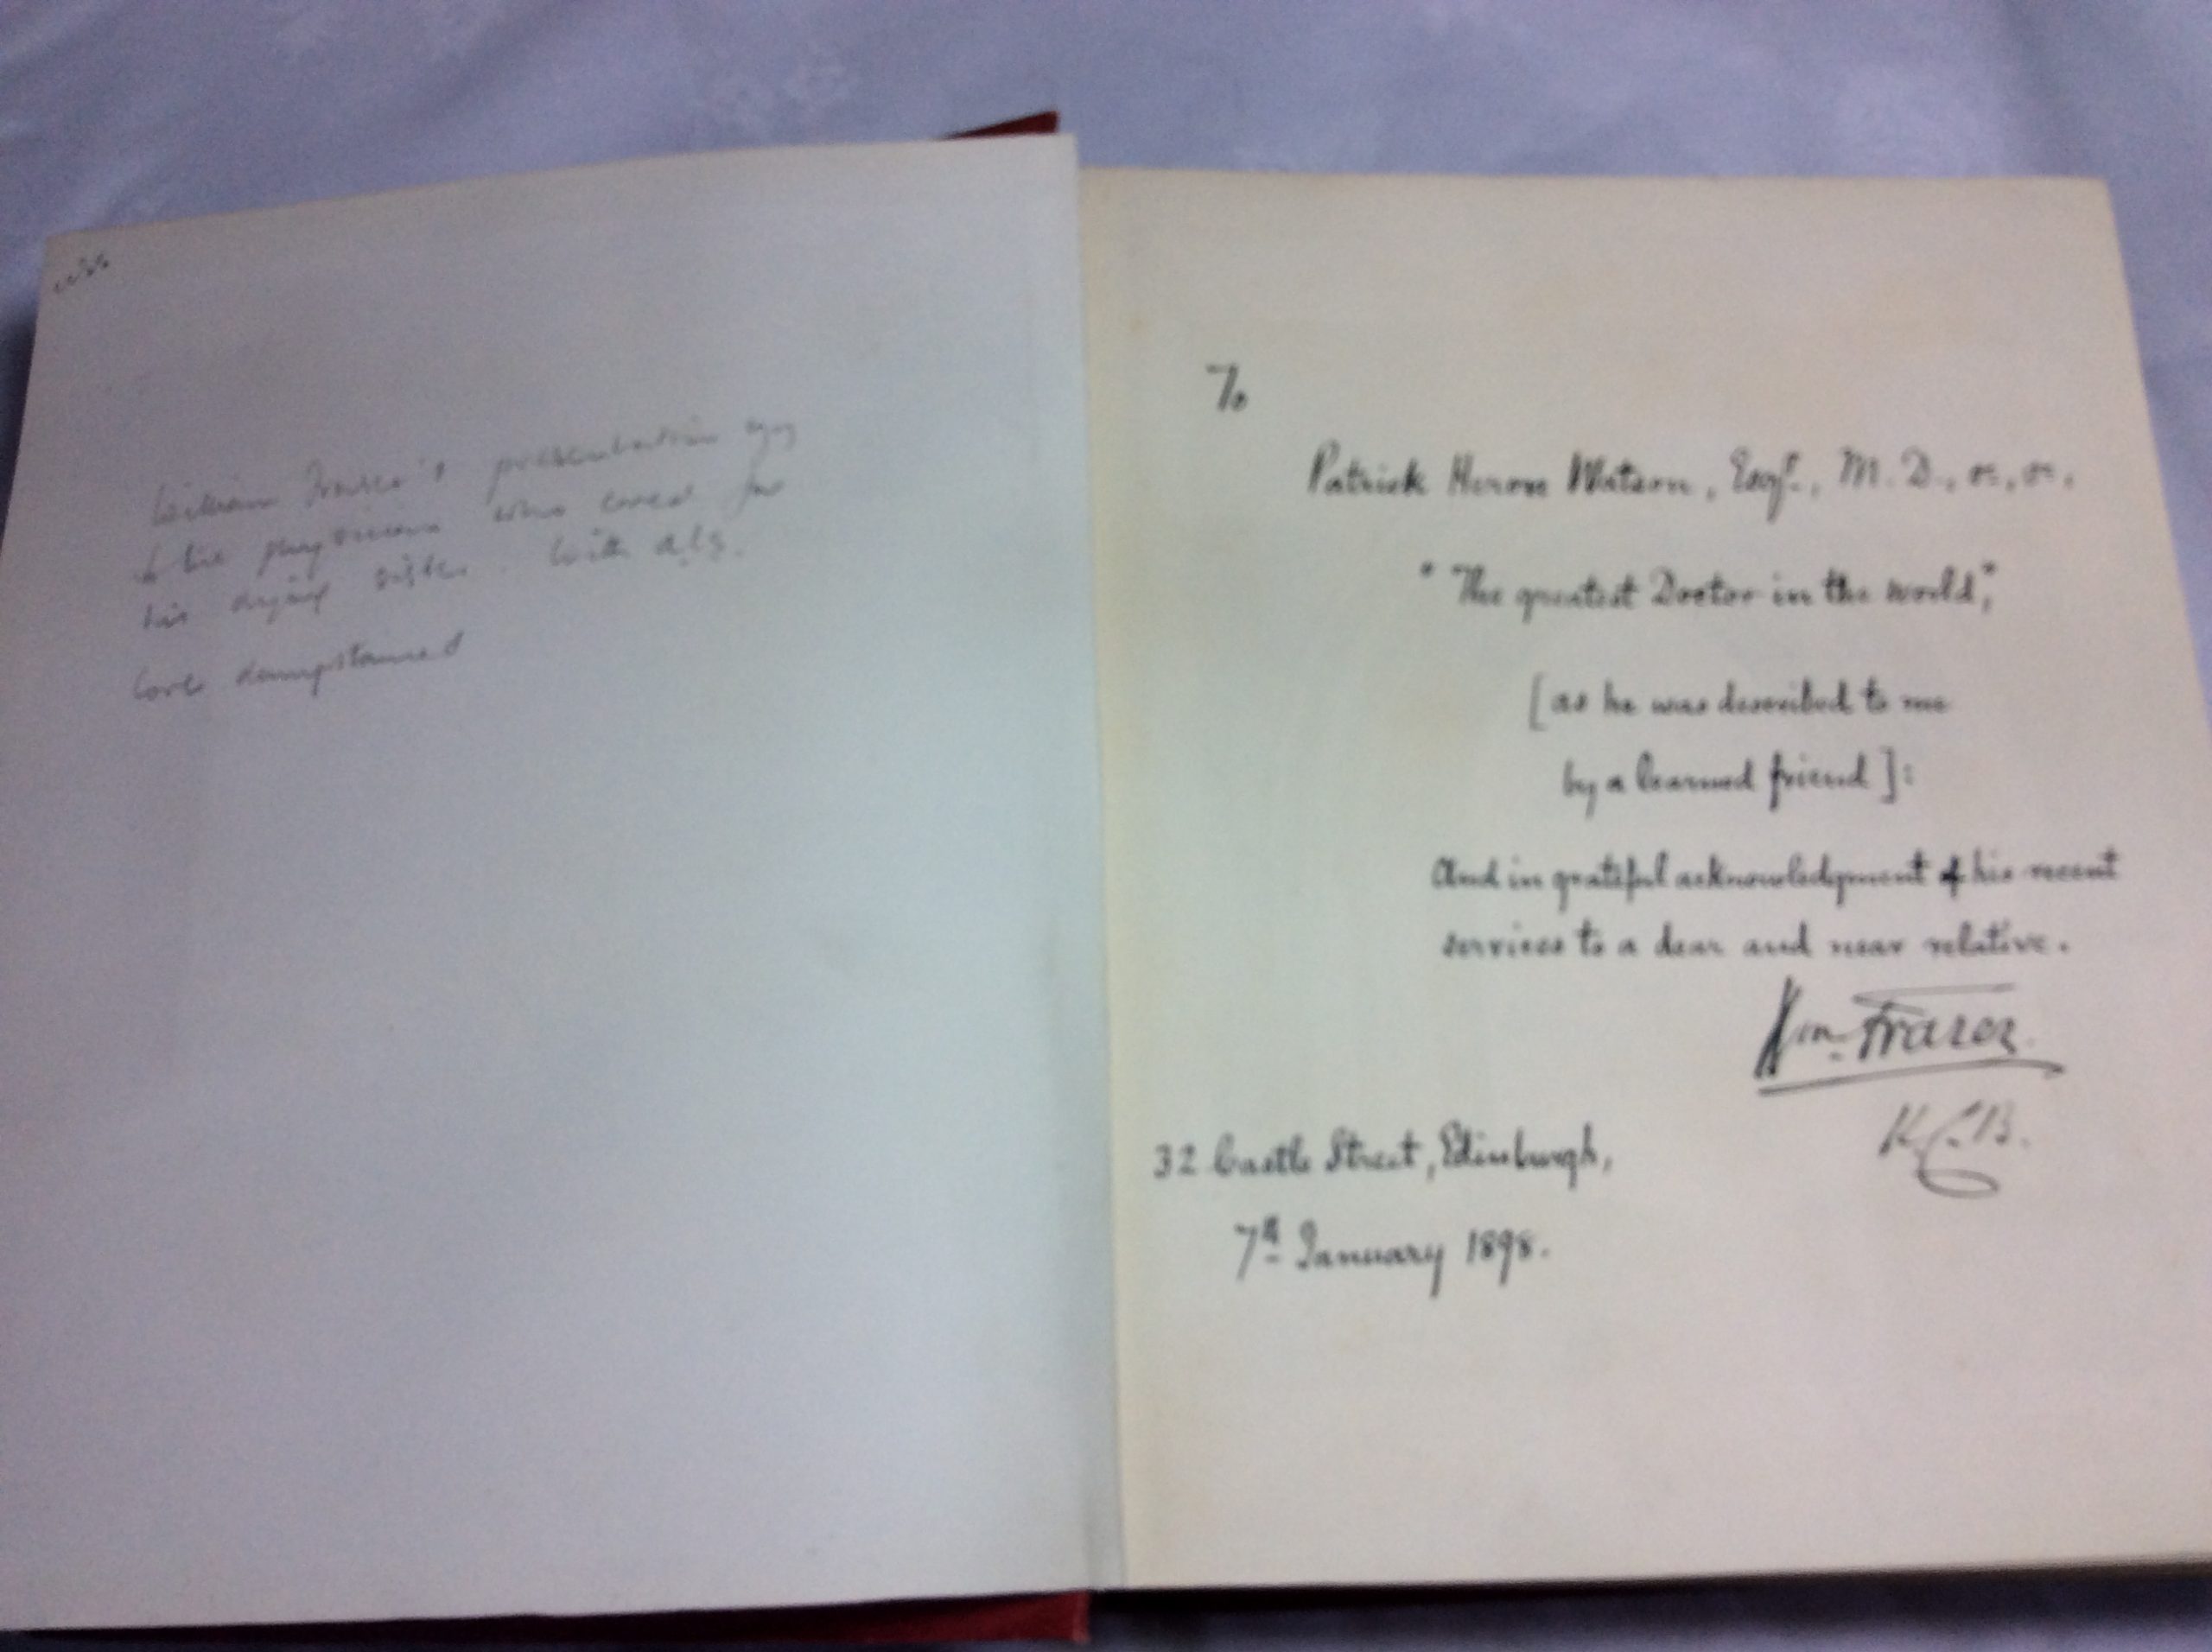 William Fraser's presentation copy
to the physician who cared for
his dying sister. With a.l.s.
Cover dampstained
To
Patrick Heron Watson, Esqr., M.D., &c, &c,
"The greatest Doctor in the world",
[as he was described to me
by a learned friend]:
And in grateful acknowledgment of his recent
services to a dear and near relative.
Wm. Fraser.
K.C.B.
32 Castle Street, Edinburgh,
7th January 1898.